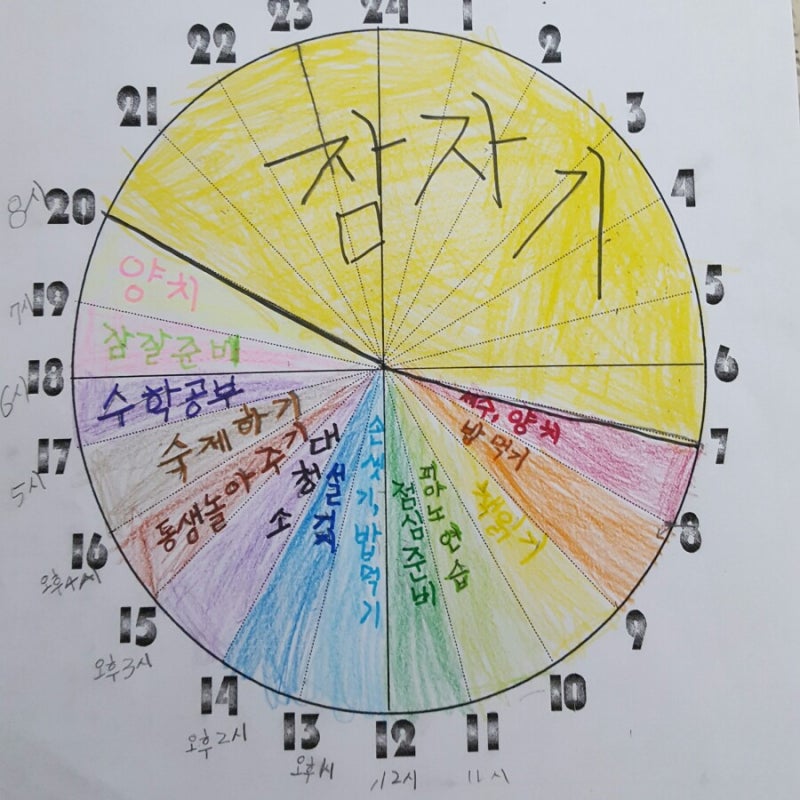 24
1
2
3
4
5
6
7
8
9
10
11
11시
12
12시
13
오후1시
14
오후2시
15
오후3시
16
오후4시
17
5시
18
6시
19
7시
20
8시
21
22
23
잠자기
세수, 양치
밥먹기
책읽기
피아노연습
점심준비
손씻기, 밥먹기
설겆
대청소
동생놀아주기
숙제하기
수학공부
잠잘준비
양치